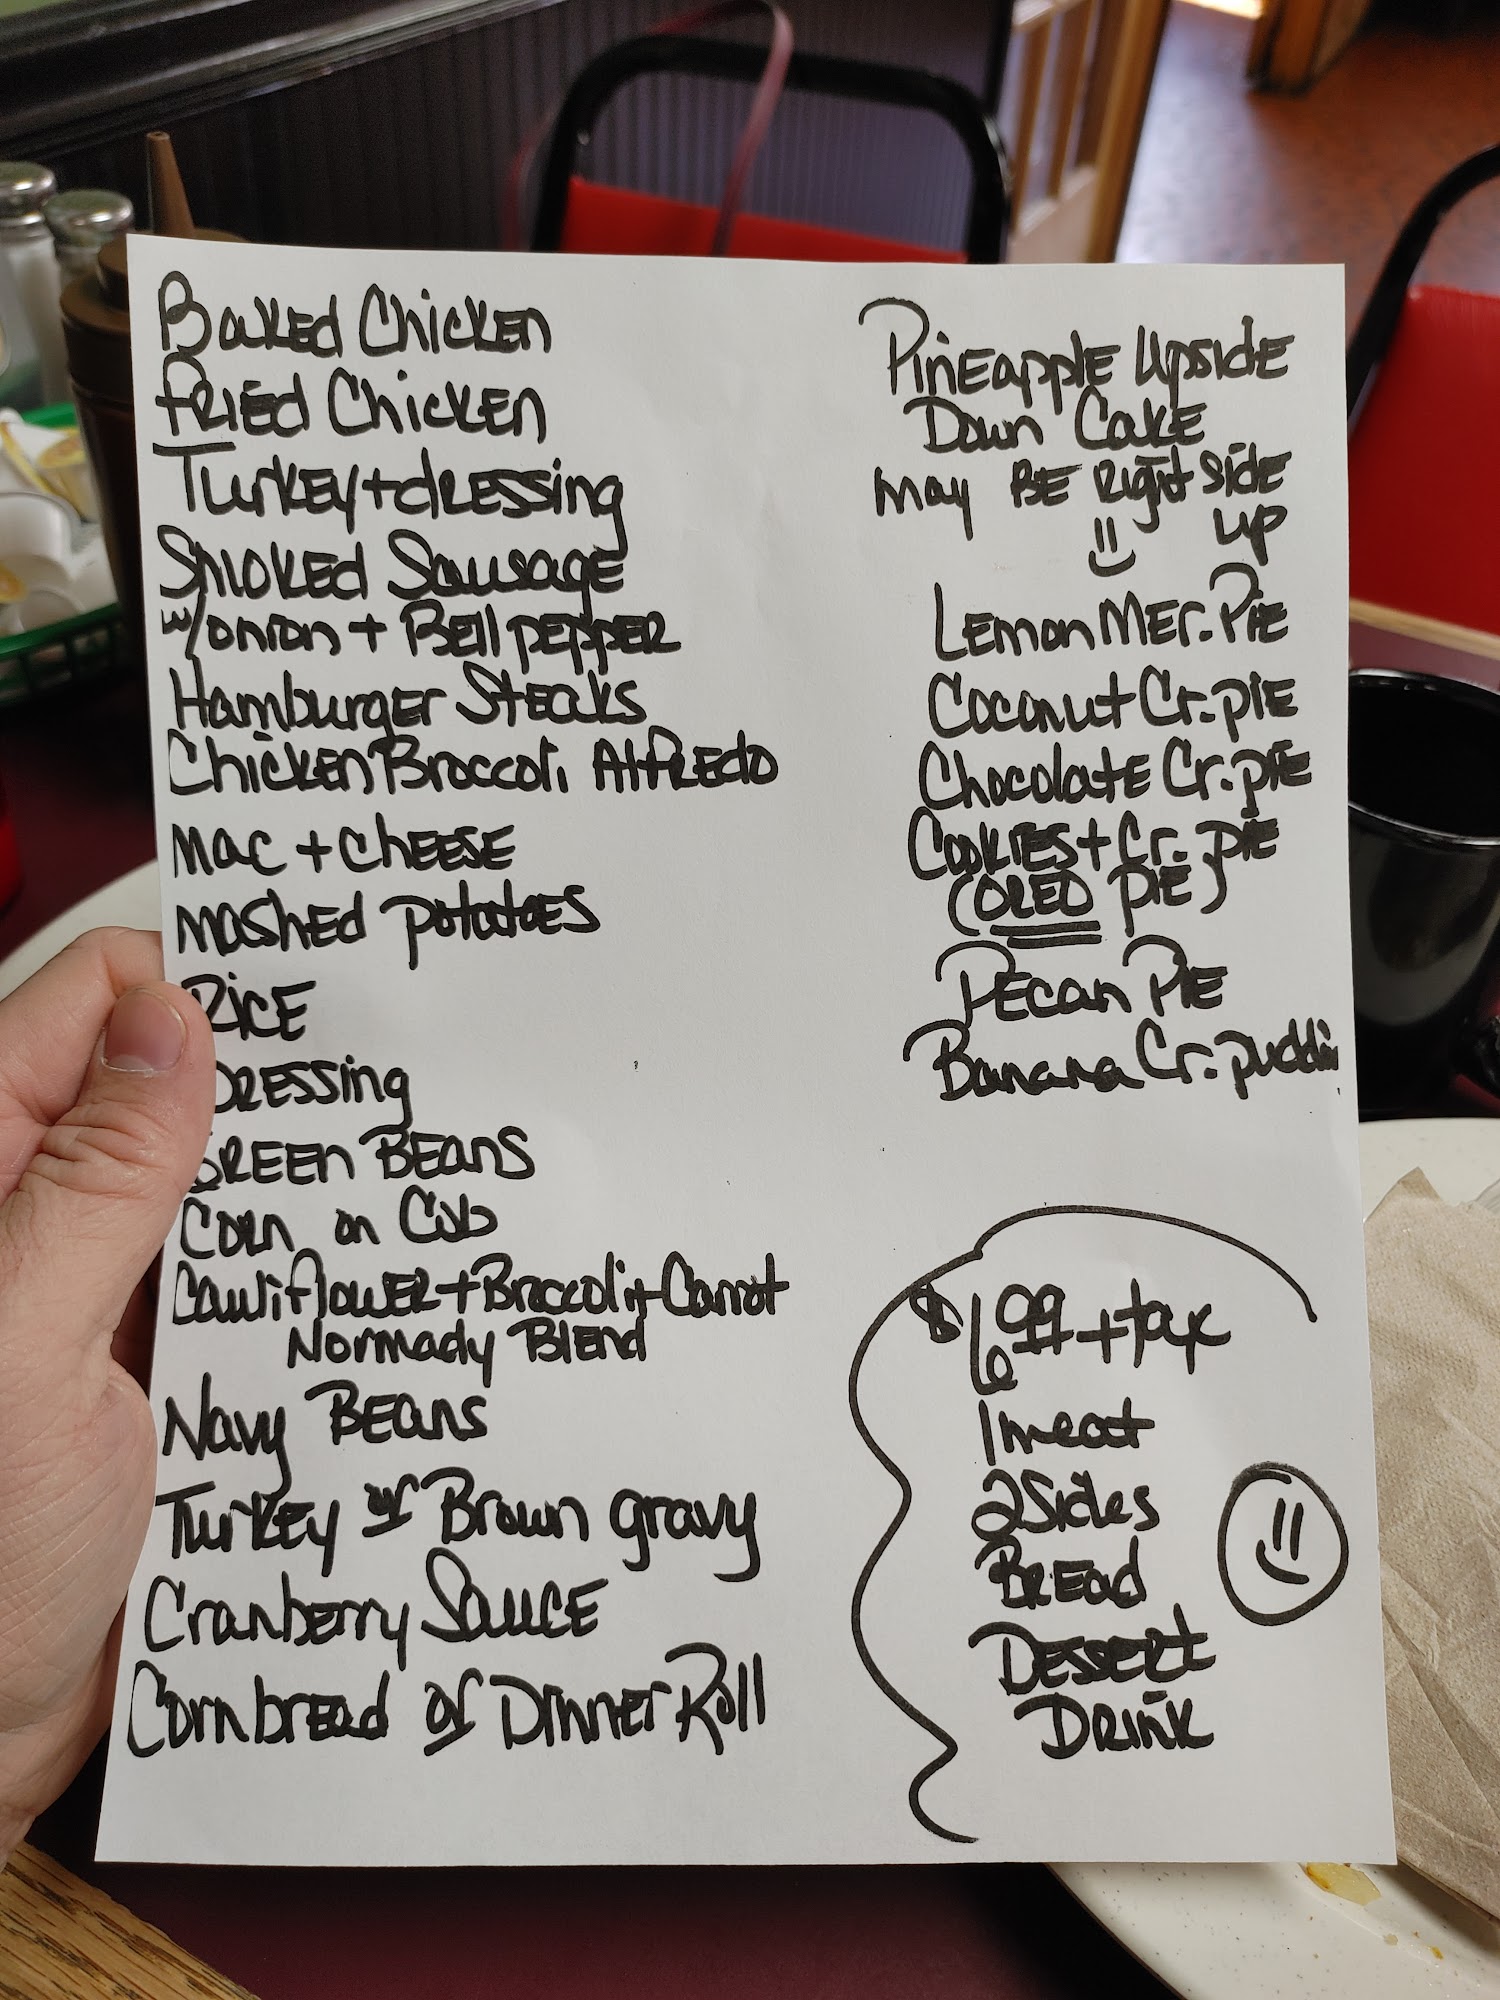 Baked Chicken
Fried Chicken
Turkey + dressing
Smoked Sausage
w/onion + Bell pepper
Hamburger Steaks
Chicken Broccoli Alfredo
Mac + cheese
Mashed potatoes
Rice
Dressing
Green Beans
Corn on Cob
Cauliflower + Broccoli + Carrot
Normady Blend
Navy Beans
Turkey or Brown gravy
Cranberry Sauce
Cornbread or Dinner Roll
Pineapple Upside
Down Cake
may BE Right Side
up
Lemon Mer. Pie
Coconut Cr. pie
Chocolate Cr. pie
Cookies + Cr. pie
(OREO pie)
Pecan Pie
Banana Cr. puddin
$6.99 + tax
1 meat
2 Sides
Bread
Dessert
Drink